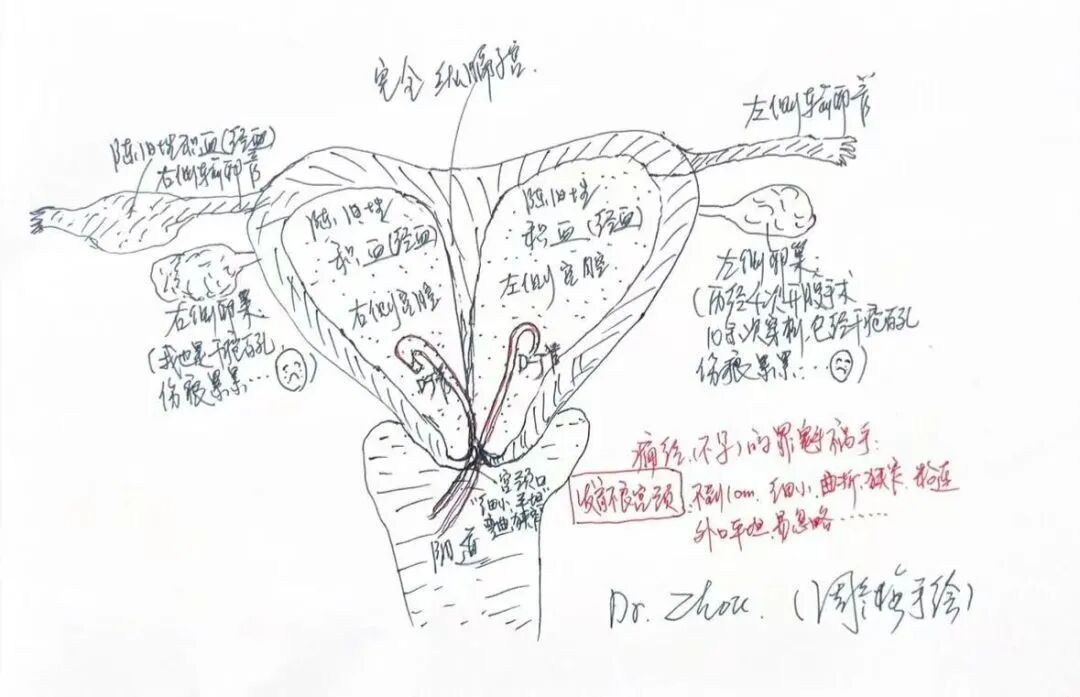 完全纵隔子宫.
陈旧性积血(经血)
右侧输卵管
左侧输卵管
陈旧性
积血(经血)
右侧宫腔
陈旧性
积血(经血)
左侧宫腔
右侧卵巢
(我也是千疮百孔,
伤痕累累……)
左侧卵巢
(历经4次开腹手术
10余次穿刺,已经千疮百孔
伤痕累累……)
宫颈口
"细小、平坦
弯曲,狭窄"
阴道
痛经、(不孕)的罪魁祸手:
发育不良宫颈 不到1cm、细小、曲折、狭窄、粘连
外口平坦、易忽略……
Dr. Zhou.